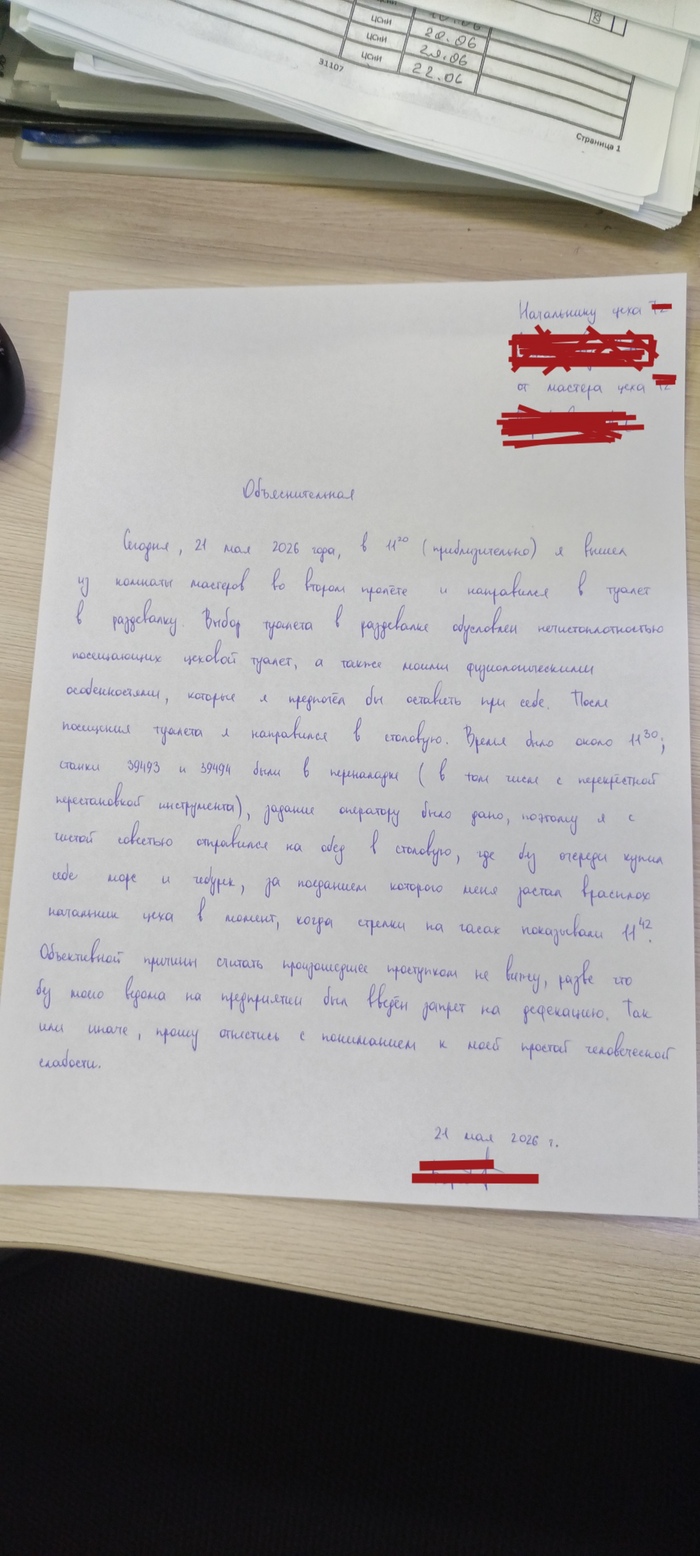 20.06
ЦСНИ
21.06
ЦСНИ
22.06
31107
Страница 1
Начальнику цеха
от мастера цеха
Объяснительная
Сегодня, 21 мая 2026 года, в 11²⁰ (приблизительно) я вышел
из комнаты мастеров во втором пролёте и направился в туалет
в раздевалку. Выбор туалета в раздевалке обусловлен нечистоплотностью
посещающих цеховой туалет, а также моими физиологическими
особенностями, которые я предпочёл бы оставить при себе. После
посещения туалета я направился в столовую. Время было около 11³⁰;
станки 39493 и 39494 были в переналадке (в том числе с перекрёстной
перестановкой инструмента), задание оператору было дано, поэтому я с
чистой совестью отправился на обед в столовую, где без очереди купил
себе морс и чебурек, за поеданием которого меня застал врасплох
начальник цеха в момент, когда стрелки на часах показывали 11⁴².
Объективной причины считать произошедшее проступком не вижу, разве что
без моего ведома на предприятии был введён запрет на дефекацию. Так
или иначе, прошу отнестись с пониманием к моей простой человеческой
слабости.
21 мая 2026 г.